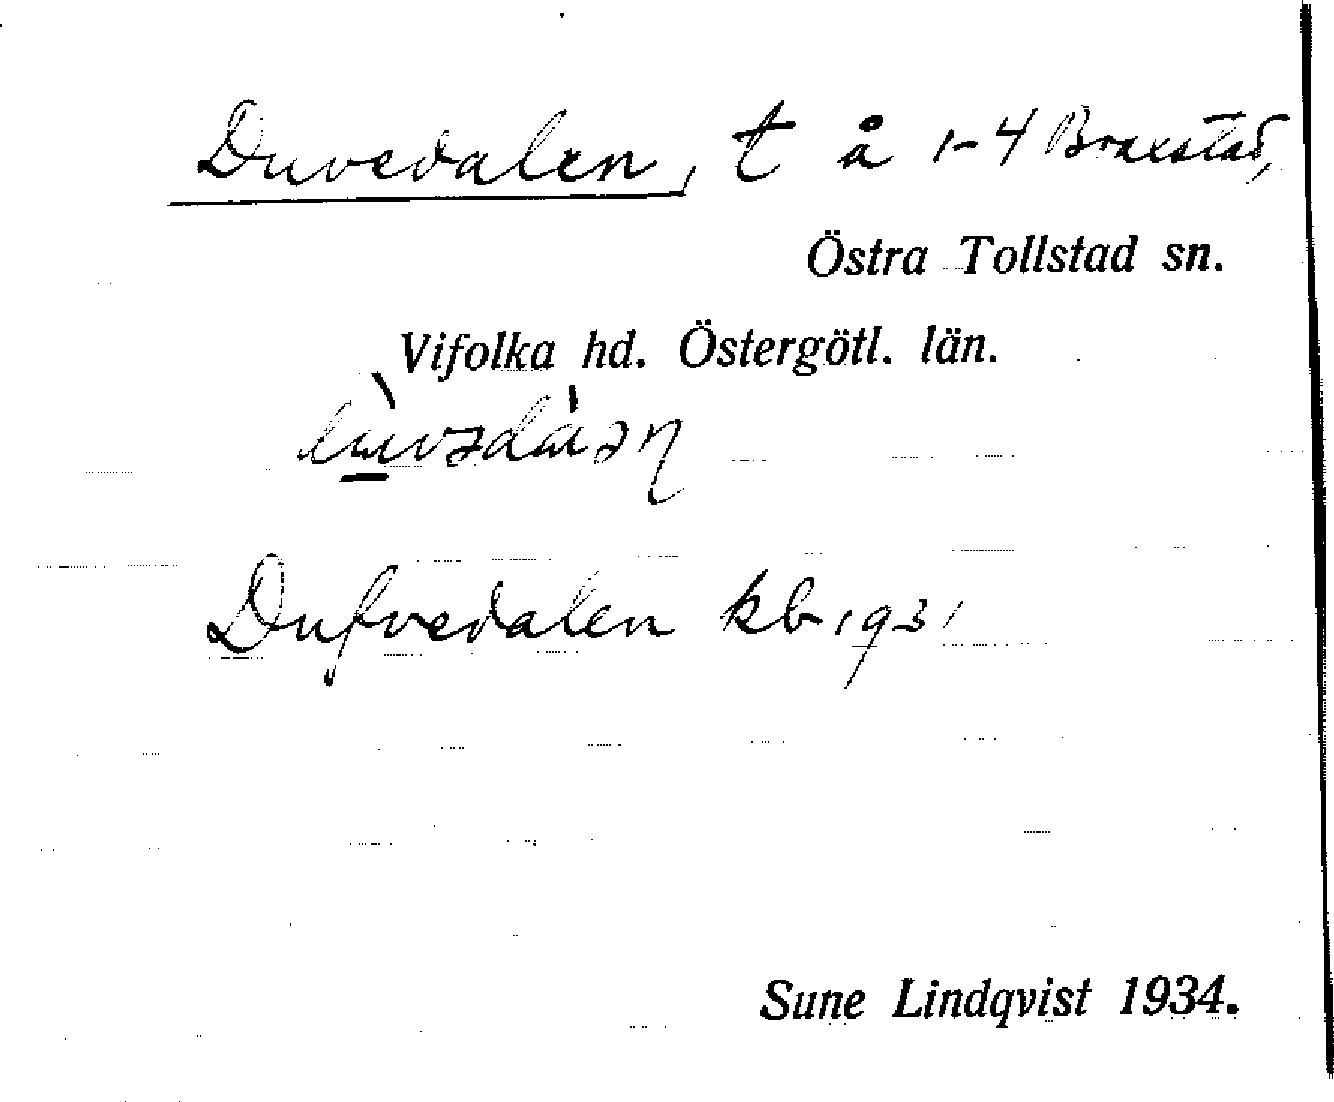 Duvedalen, t å 1-4 Braxstad,
Östra Tollstad sn.
Vifolka hd. Östergötl. län.
Dufvedalen kb 1931
Sune Lindqvist 1934.